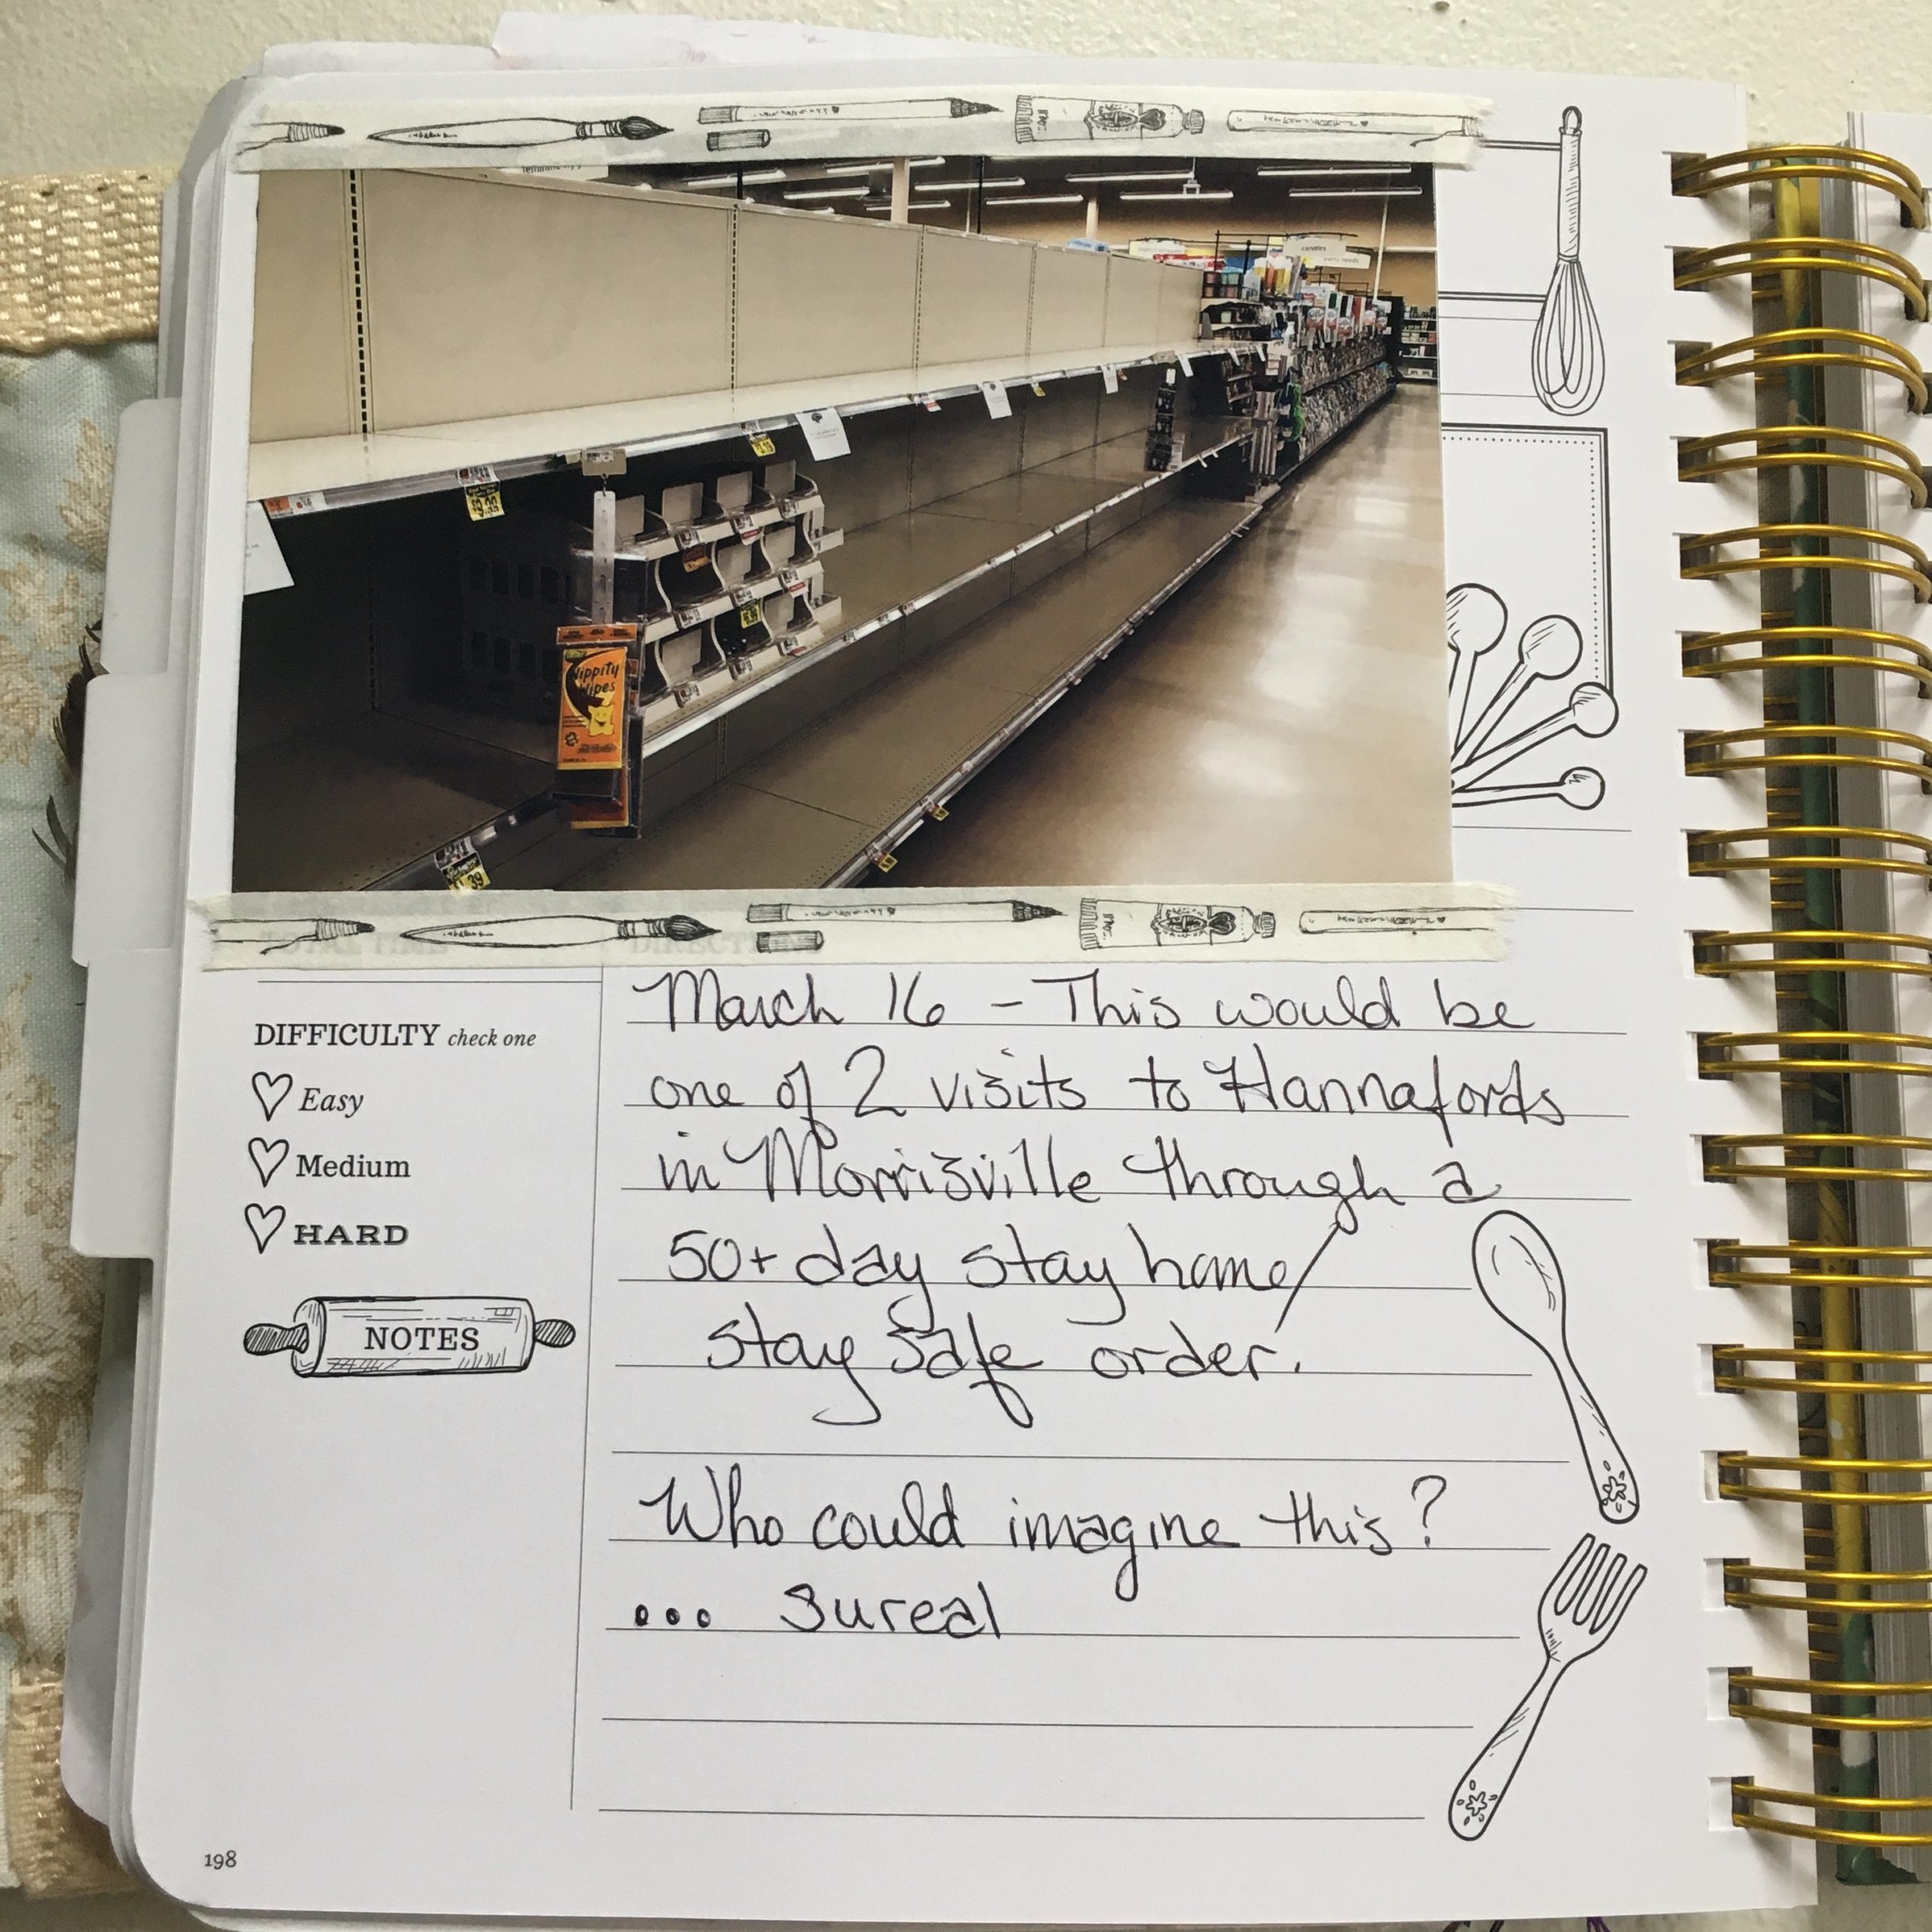 candles
$1.39
Nippity
Wipes
TOTAL TIME
DIRECTIONS
March 16 – This would be
one of 2 visits to Hannafords
in Morrisville through a
50+ day stay home/
stay safe order.
Who could imagine this?
... sureal
DIFFICULTY check one
Easy
Medium
HARD
NOTES
198